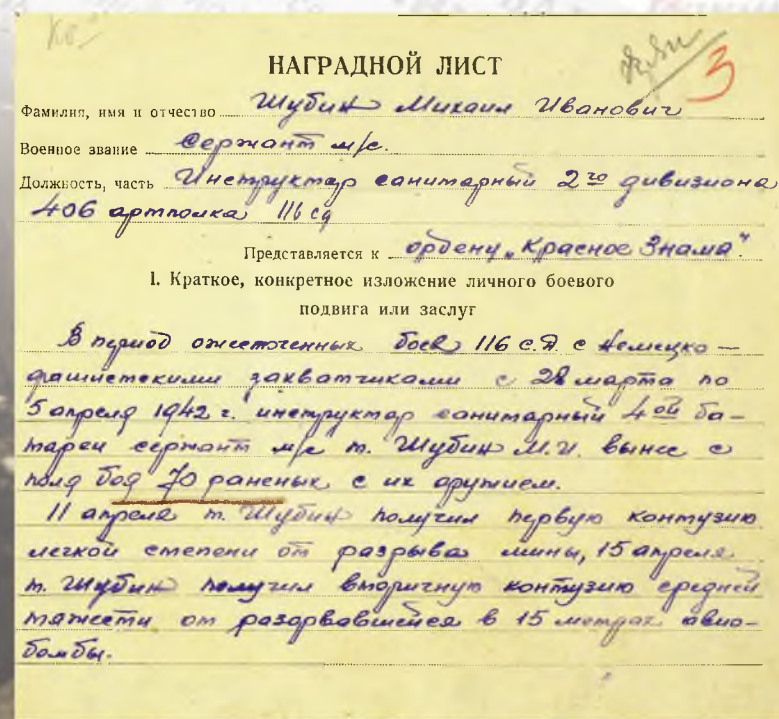 3
НАГРАДНОЙ ЛИСТ
Фамилия, имя и отчество Шубин Михаил Иванович
Военное звание Сержант м/с.
Должность, часть Инструктор санитарный 2го дивизиона
406 артполка 116 сд
Представляется к ордену „Красное Знамя".
1. Краткое, конкретное изложение личного боевого
подвига или заслуг
В период ожесточенных боев 116 С.Д. с немецко-
фашистскими захватчиками с 28 марта по
5 апреля 1942 г. инструктор санитарный 4ой ба-
тареи сержант м/с т. Шубин М.И. вынес с
поля боя 70 раненых с их оружием.
11 апреля т. Шубин получил первую контузию
легкой степени от разрыва мины, 15 апреля
т. Шубин получил вторичную контузию средней
тяжести от разорвавшейся в 15 метрах авиа-
бомбы.